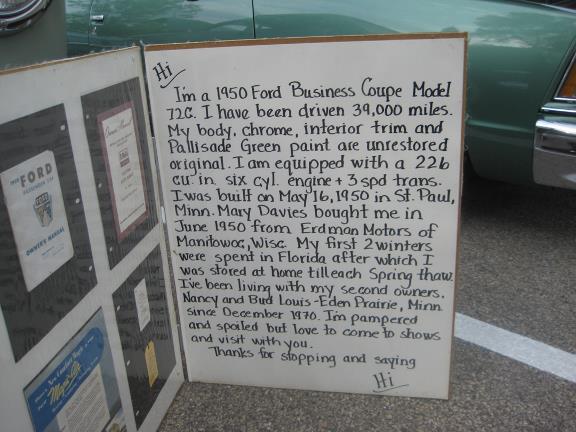 Hi
I'm a 1950 Ford Business Coupe Model
72C. I have been driven 39,000 miles.
My body, chrome, interior trim and
Pallisade Green paint are unrestored
original. I am equipped with a 226
cu. in. six cyl. engine + 3 spd trans.
I was built on May 16, 1950 in St. Paul,
Minn. Mary Davies bought me in
June 1950 from Erdman Motors of
Manitowoc, Wisc. My first 2 winters
were spent in Florida after which I
was stored at home till each Spring thaw.
I've been living with my second owners,
Nancy and Bud Louis-Eden Prairie, Minn.
since December 1970. I'm pampered
and spoiled but love to come to shows
and visit with you.
Thanks for stopping and saying
Hi
1950
FORD
OWNER'S MANUAL